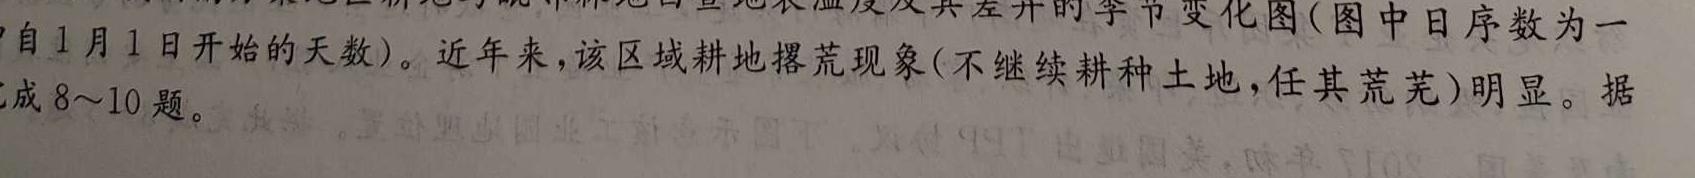 地表温度及其差异的季节变化图(图中日序数为一
自1月1日开始的天数)。近年来,该区域耕地撂荒现象(不继续耕种土地,任其荒芜)明显。据
成8~10题。